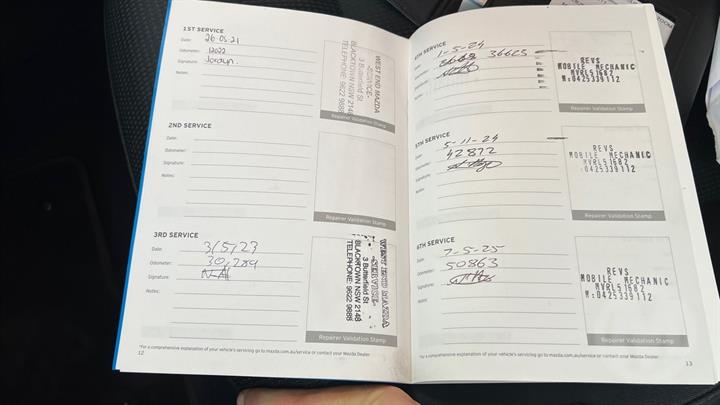 1ST SERVICE
Date: 26-05-21
Odometer: 12022
Signature: Jordyn.
Notes:
WEST END MAZDA
-SERVICE-
3 Butterfield St
BLACKTOWN NSW 2148
TELEPHONE: 9622 9888
Repairer Validation Stamp
2ND SERVICE
Date:
Odometer:
Signature:
Notes:
Repairer Validation Stamp
3RD SERVICE
Date: 3/5/23
Odometer: 30,289
Signature:
Notes:
WEST END MAZDA
-SERVICE-
3 Butterfield St
BLACKTOWN NSW 2148
TELEPHONE: 9622 9888
Repairer Validation Stamp
*For a comprehensive explanation of your vehicle's servicing go to mazda.com.au/service or contact your Mazda Dealer
12
4TH SERVICE
Date: 1-5-24
Odometer: 36625
Signature:
Notes:
REVS
MOBILE MECHANIC
MVRL51682
M:0425339112
Repairer Validation Stamp
5TH SERVICE
Date: 5-11-24
Odometer: 42872
Signature:
Notes:
REVS
MOBILE MECHANIC
MVRL51682
:0425339112
Repairer Validation Stamp
6TH SERVICE
Date: 7-5-25
Odometer: 50863
Signature:
Notes:
REVS
MOBILE MECHANIC
MVRL51682
M:0425339112
Repairer Validation Stamp
*For a comprehensive explanation of your vehicle's servicing go to mazda.com.au/service or contact your Mazda Dealer
13